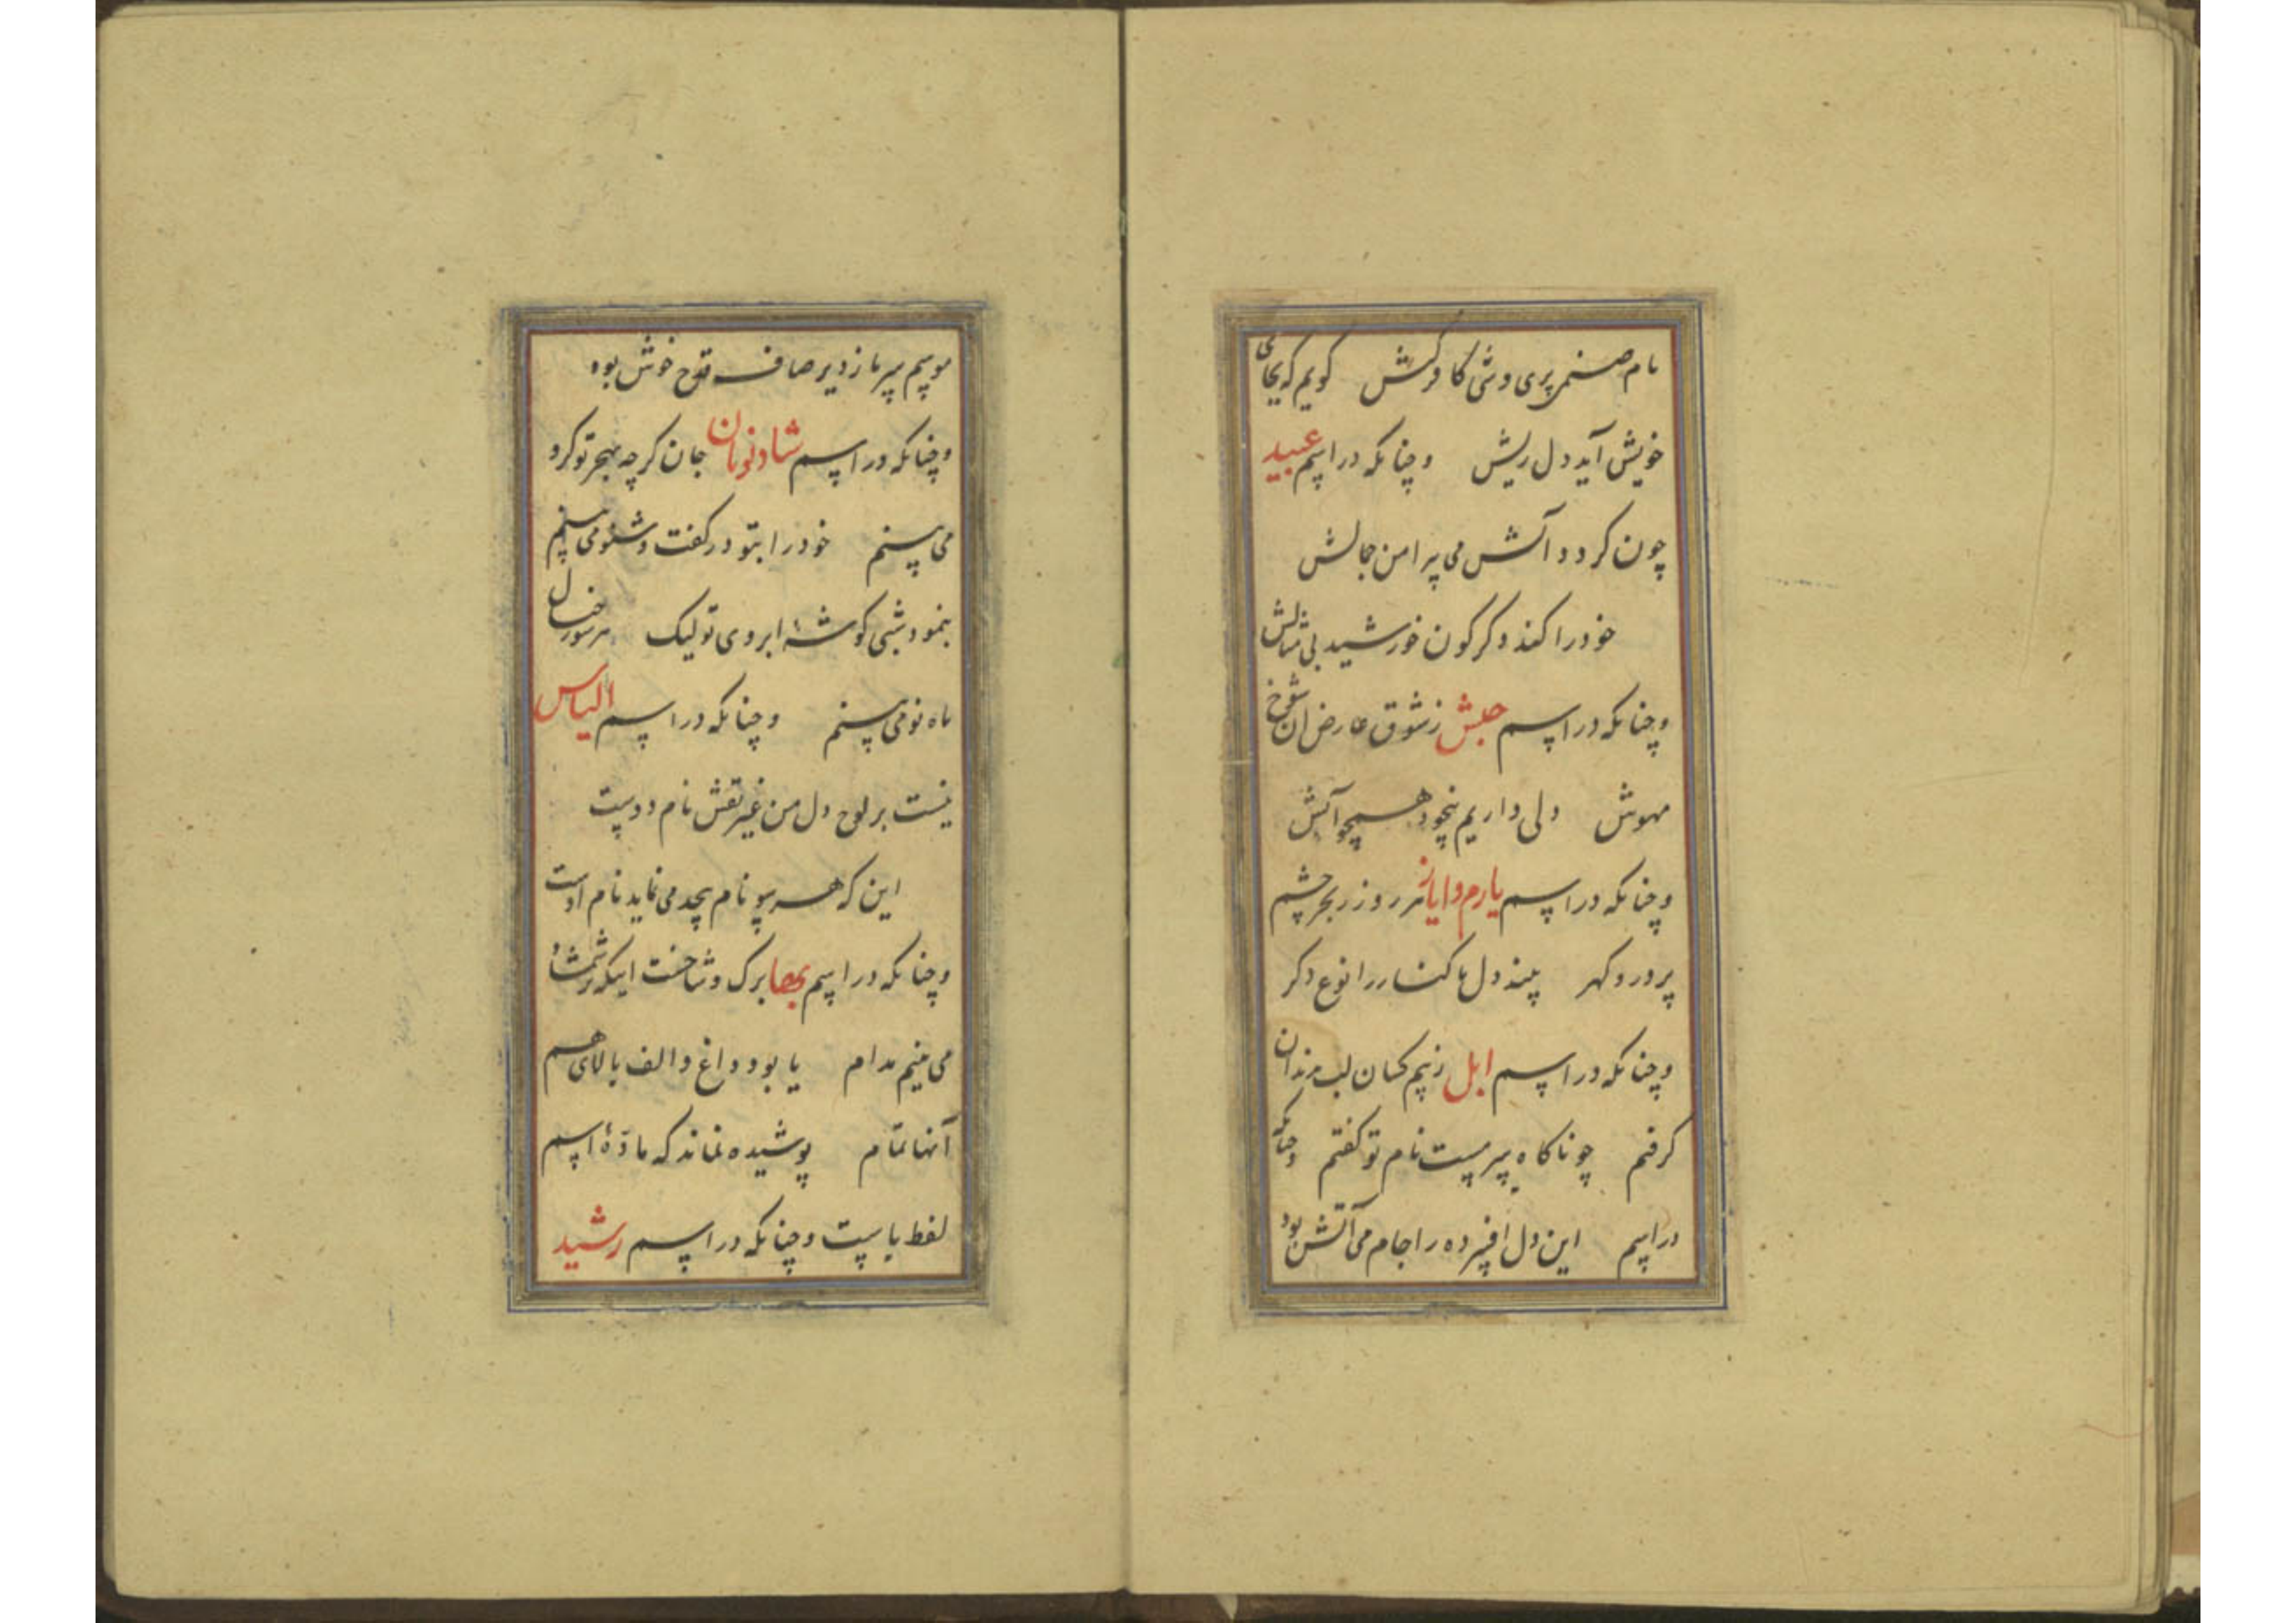 نام صنمی پری وشی کافرکش کویم که بجای
خویش آید دل ریش وچنانکه در اسم عبید
چون کردد آتش می پیرامن جمالش
خود را کند دکرکون خورشید بی مثالش
وچنانکه در اسم حبش ز شوق عارض ان شوخ
مهوش دلی داریم بیخود همچو آتش
وچنانکه در اسم یارم وایاز هر روز ز بحر چشم
پر در و کهر بیند دل ما کنار را نوع دکر
وچنانکه در اسم ابل ز بیم کسان لب بدندان
کرفتم چو ناکاه سرمست نام تو کفتم وچنانکه
در اسم این دل افسرده را جام می آتش بود
موسم سرما ز دیر صاف قدح خوش بود
وچنانکه در اسم شادنومان جان کرچه بهجر تو کرو
می بینم خود را بتو در کفت وشنو می بینم
بنمود شبی کوشهٔ ابروی تو لیک
ماه نو می بینم وچنانکه در اسم الیاس
نیست بر لوح دل من غیر نقش نام دوست
این که هر سو نام بیحد می نماید نام اوست
وچنانکه در اسم برک وشاخست اینکه
می بینم مدام یا بود داغ والف بالای هم
آنها تمام پوشیده نماند که مادّهٔ اسم
لفظ باست وچنانکه در اسم رشید